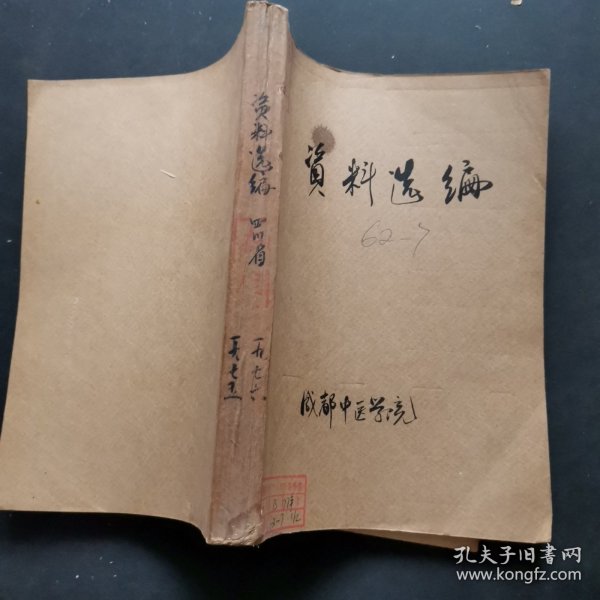 資料选编
62-7
成都中医学院
资料选编 四川省
一九七五
一九七六
孔夫子旧书网
www.kongfz.com